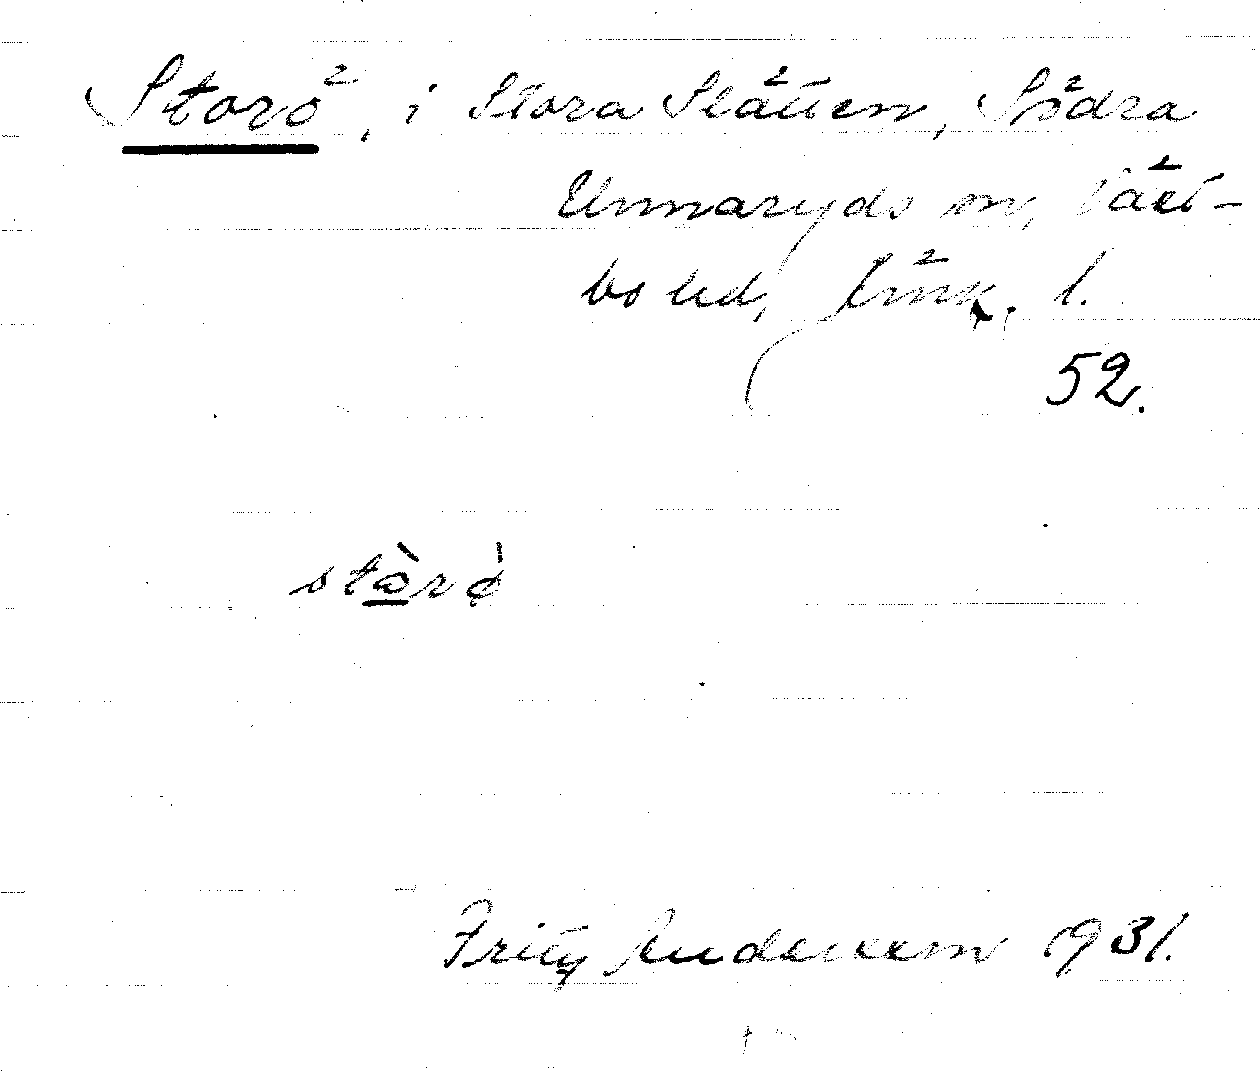 Storö, i Stora Slätten, Södra
Unnaryds sn, Väst-
bo hd, Jönk. l.
52.
stòrǿ
Fritz Andersson 1931.